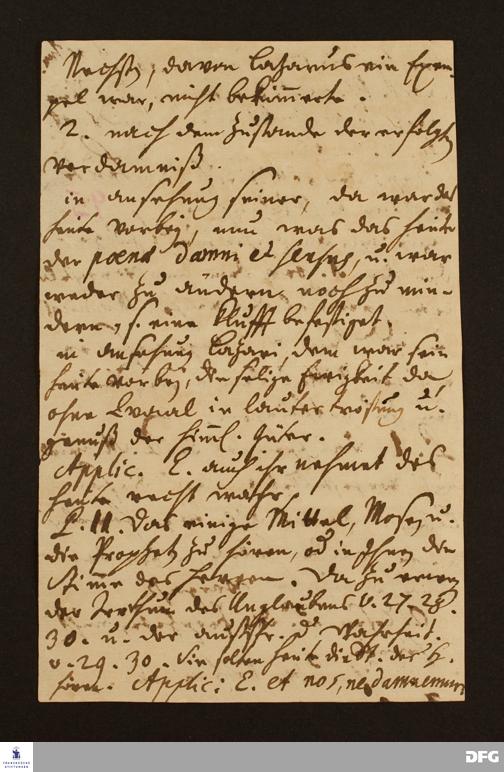 Nechsten, davon Lazarus ein Exem-
pel war, nicht bekümmerte.
2. nach dem Zustande der erfolgten
Verdamniß.
in ansehung seiner, da war das
heute vorbey, nun was das heute
der poena damni et sensus, u. war
weder zu ändern noch zu min-
dern, s. eine Klufft befestiget.
in ansehung Lazari, dem war sein
heute vorbey, die selige Ewigkeit da,
ohne Qvaal in lauter tröstung u.
genuß der himml. Güter.
Applic. E. auch ihr nehmet das
heute recht wahr
P. II. Das einige Mittel, Mosen u.
die Propheten zu hören, od in Ihnen die
Stimme des Herren. Da zu
der Irrthum des Unglaubens v. 27. 28.
30. u. der Wahrheit.
v. 29. 30. Sie solten heut die St. des H.
hören. Applic: E. et nos, ne damnemur
FRANCKESCHE STIFTUNGEN
DFG